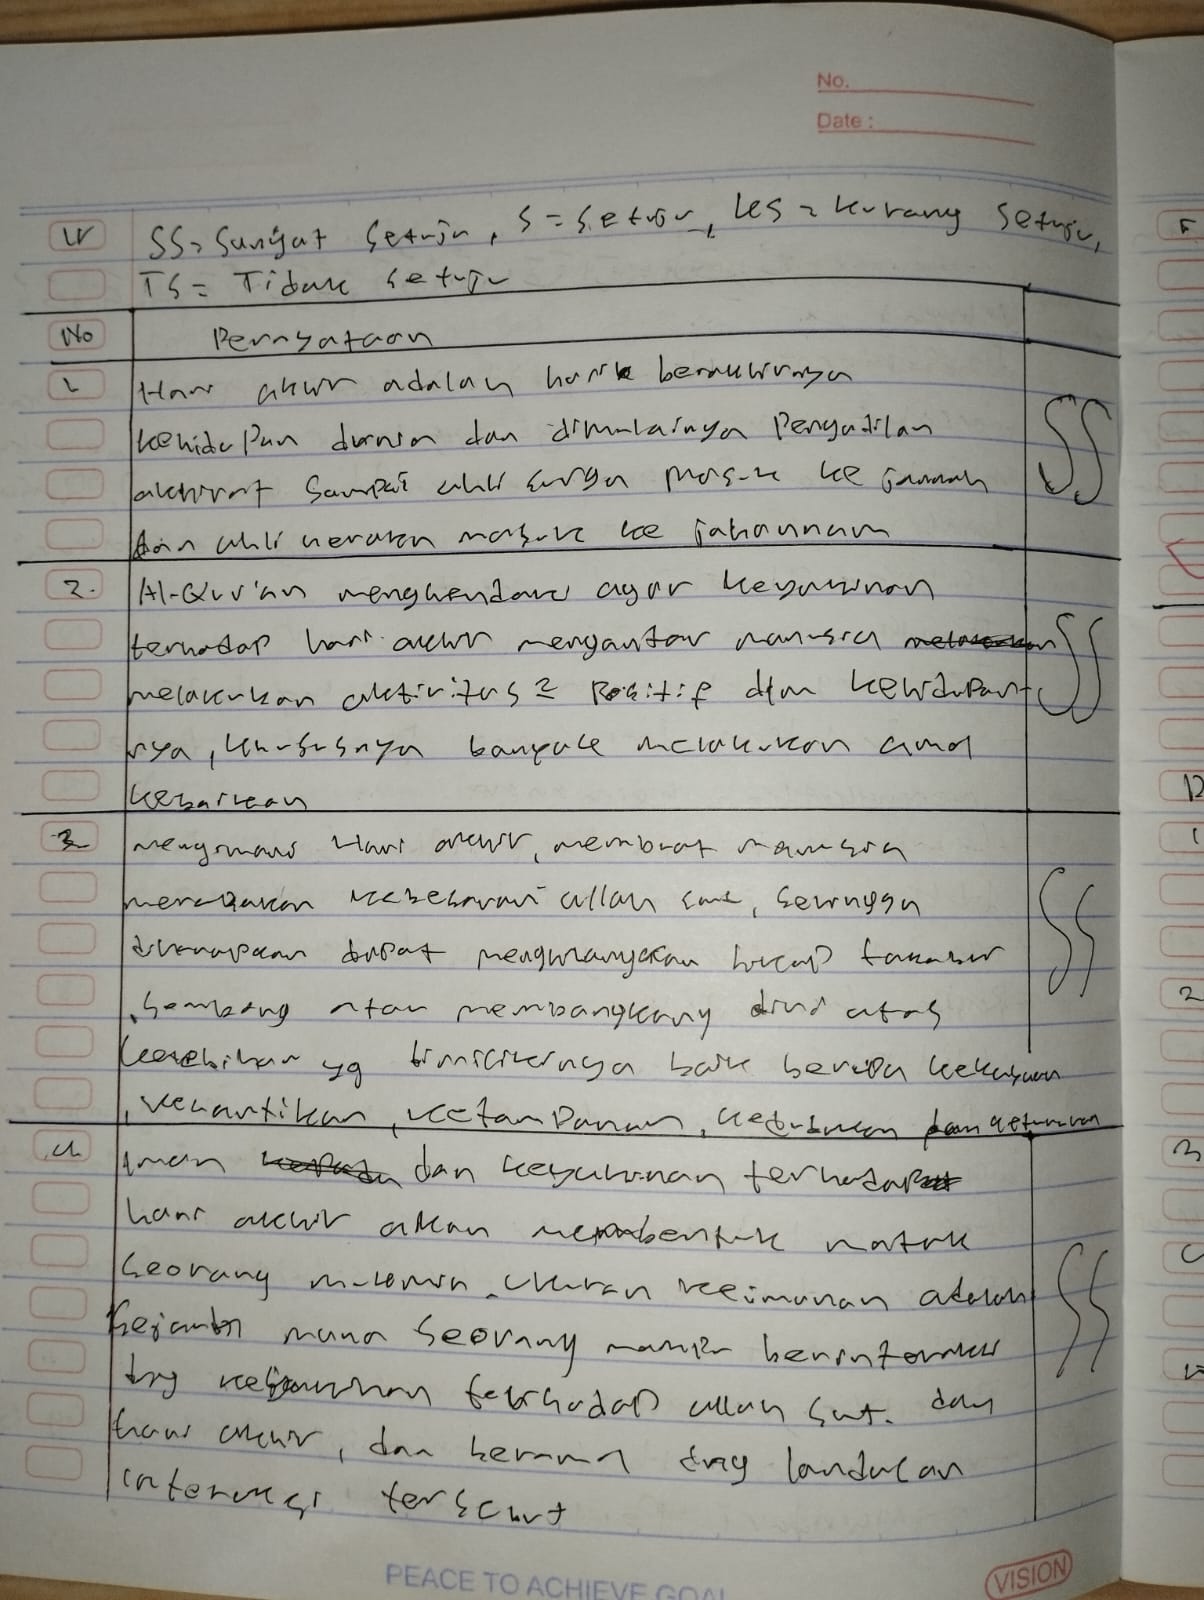 No.
Date :
SS = Sangat Setuju, S = Setuju, KS = Kurang Setuju,
TS = Tidak Setuju
No Pernyataan
1 Hari akhir adalah hari berakhirnya
kehidupan dunia dan dimulainya Pengadilan
akhirat Sampai ahli surga masuk ke jannah
dan ahli neraka masuk ke jahannam
SS
2. Al-Qur'an menghendaki agar keyakinan
terhadap hari akhir mengantar manusia
melakukan aktivitas2 Positif dlm kehidupan
nya, khususnya banyak melakukan amal
kebaikan
SS
3 Mengimani Hari akhir, membuat manusia
merasakan kebesaran allah swt, sehingga
diharapkan dapat menghilangkan sikap takabur
, sombong atau membangkang diri atas
kelebihan yg dimilikinya baik berupa kekayaan
, kecantikan, ketampanan, kedudukan
SS
4 Iman dan keyakinan terhadap
hari akhir akan membentuk watak
Seorang mukmin. Ukuran keimanan adalah
Sejauh mana Seorang berinteraksi
dng keyakinan terhadap allah swt. dan
hari akhir, dan beramal dng landasan
interaksi tersebut
SS
PEACE TO ACHIEVE GOAL
VISION